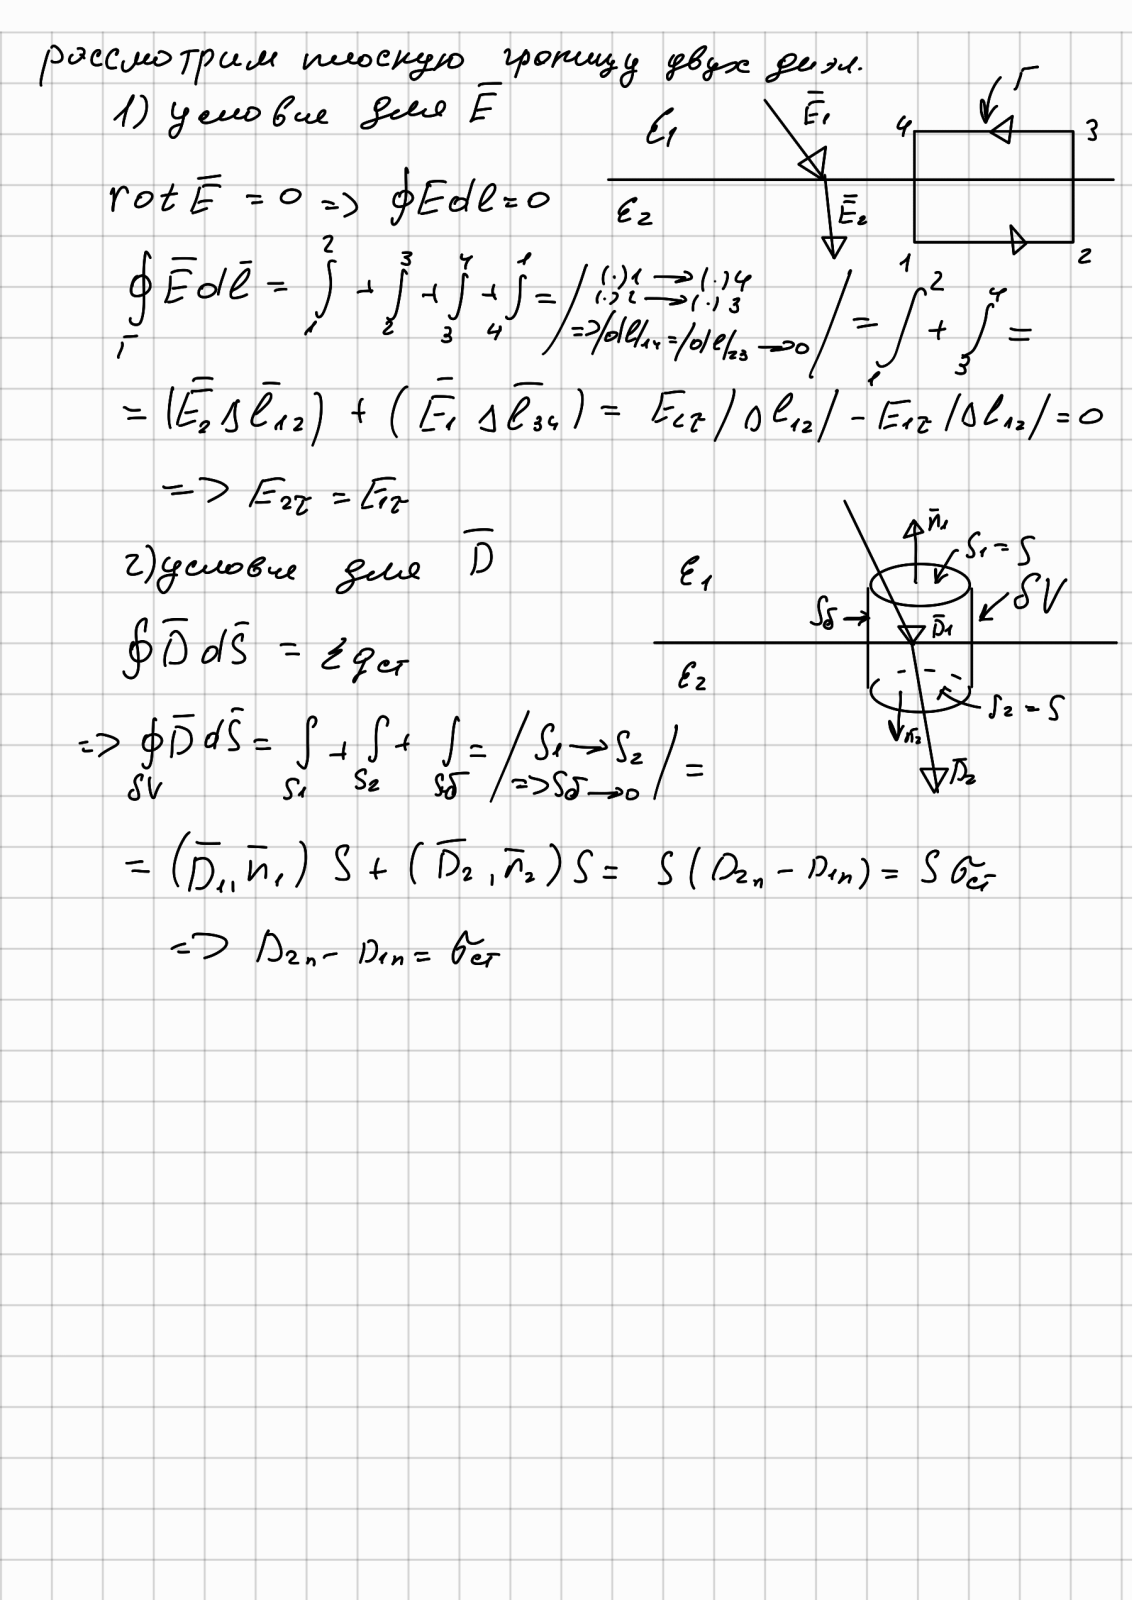 рассмотрим плоскую границу двух диэл.
1) условие для E̅
ε₁ E̅₁ Г 4 3
rot E̅ = 0 => ∮Edl = 0
ε₂ E̅₂ 1 2
∮_Г E̅dl̅ = ∫₁² + ∫₂³ + ∫₃⁴ + ∫₄¹ = /(·)1 → (·)4
(·)2 → (·)3
=> |dl|₁₄ = |dl|₂₃ → 0/ = ∫₁² + ∫₃⁴ =
= (E̅₂ Δl̅₁₂) + (E̅₁ Δl̅₃₄) = E₂τ |Δl₁₂| - E₁τ |Δl₁₂| = 0
=> E₂τ = E₁τ
2) условие для D̅
ε₁ n̅₁ S₁ = S Sб → D̅₁ δV
∮D̅dS̅ = Σqст
ε₂ S₂ = S n̅₂ D̅₂
=> ∮_δV D̅dS̅ = ∫_S₁ + ∫_S₂ + ∫_Sб = /S₁ → S₂
=> Sб → 0/ =
= (D̅₁, n̅₁) S + (D̅₂, n̅₂) S = S (D₂n - D₁n) = S σст
=> D₂n - D₁n = σст